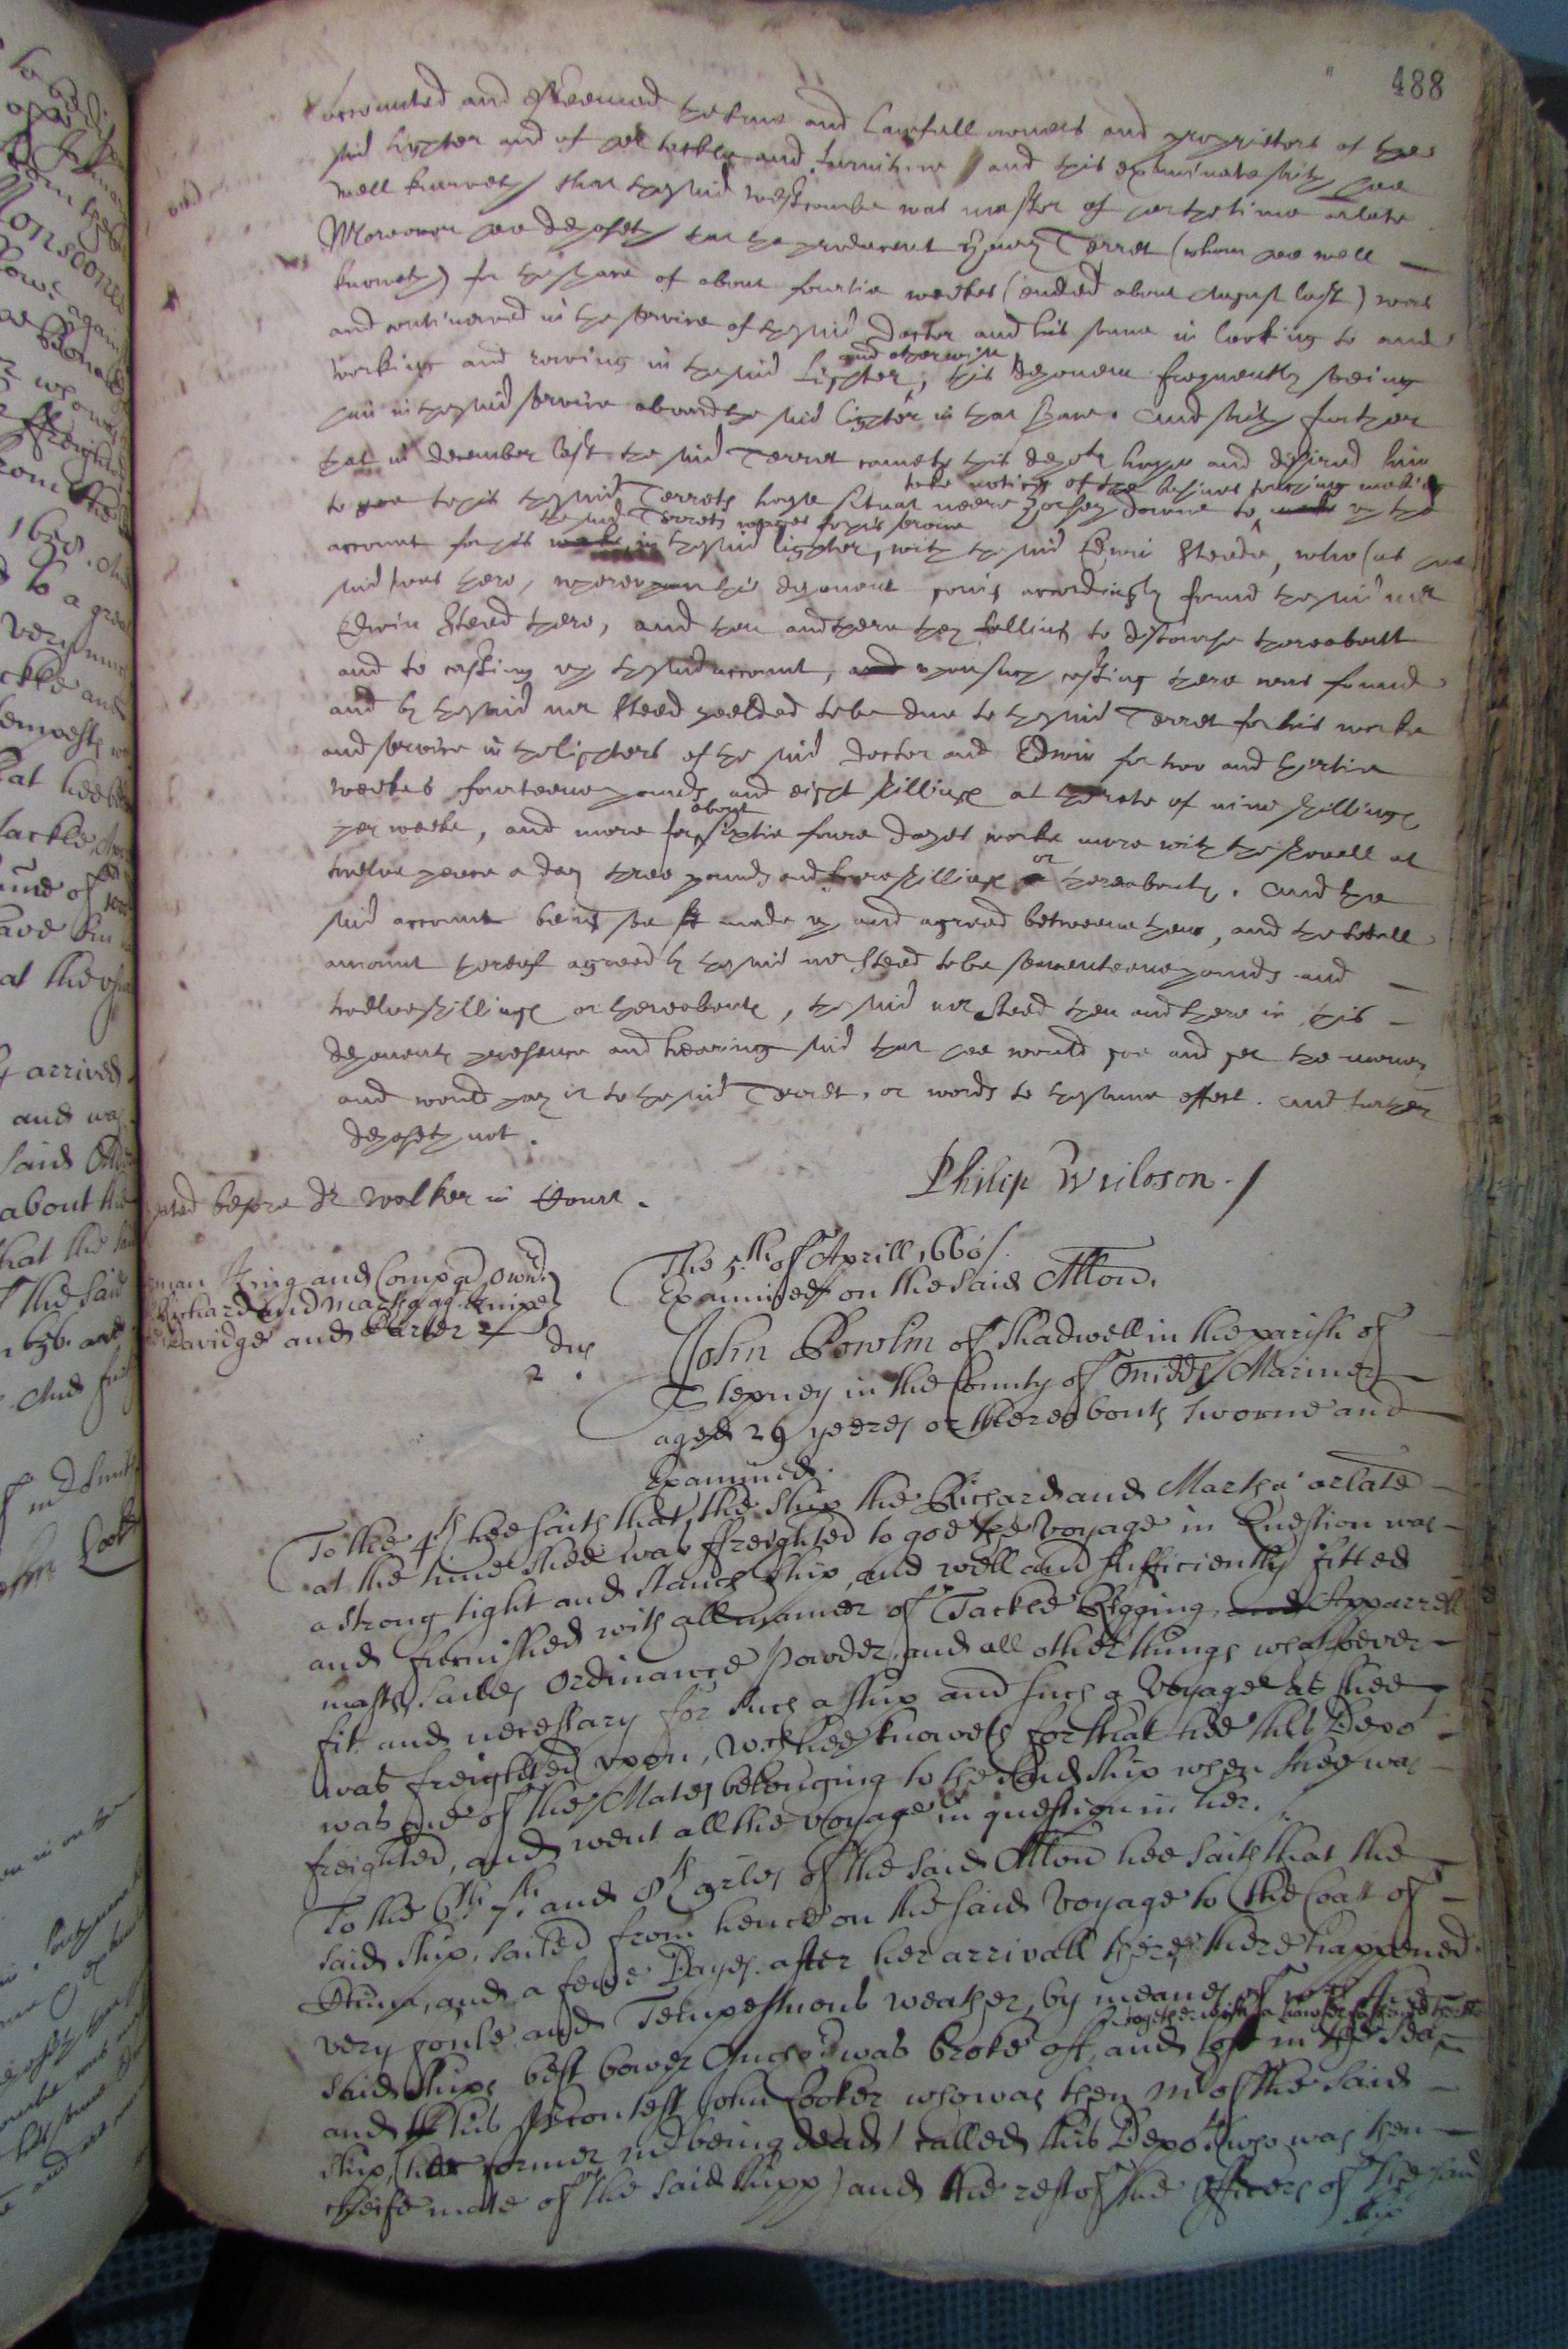 488
accounted and esteemed the true and lawfull owners and proprietors of the
said lighter and of her tackle and furniture and this examinate saith hee
well knoweth that the said was master of her the time arlate
Moreover hee deposeth that the producent Terret (whom hee well
knoweth) for the space of about fourtie weekes (ended about August last) was
and continued in the service of the said Doctor and his sonne in looking to and
working and rowing in the said Lighter, and otherwise this deponent frequently seeing
him in the said service aboard the said lighter in that space. And saith further
that in December last the said Terret came to this deponents house and desired him
to goe to his the said Terrets house situat neere downe to take notice of the making up the
account for his the said Terrets wages for his service in the said lighter, with the said Edwin Steede, who (as hee
said) was there, whereupon this deponent going accordingly found the said mr
Edwin Steed there, and then and there they falling to discourse thereabout
and to casting up the said account, and upon such casting there was found
and by the said mr Steed yeelded to be due to the said Terret for his worke
and service in the lighters of the said Doctor and Edwin for two and thirtie
weekes fourteene pounds and eight shillings at the rate of nine shillings
per weeke, and more for about sixtie foure dayes worke more with the shovell at
twelve pence a day three pounds and foure shillings or thereabouts. And the
said account being soe made up and agreed betweene them, and the totall
amount thereof agreed by the said mr Steed to be seventeene pounds and
twelve shillings or thereabouts, the said mr Steed then and there in this
deponents presence and hearing said that hee would goe and get the money
and would pay it to the said Terret, or words to the same effect. And further
deposeth not.
Philip Wuiloson
before dr Walker in Court.
The 5th of Aprill 1660
Examined on the said Allon.
King and Compa own
Richard and Martha ag. Knipe
and Carter
dus
2.
John Bowlin of Shadwell in the parish of
Stepney in the County of Middx Mariner
aged 29 yeeres or thereabouts sworne and
Examined.
To the 4th hee saith that, the ship the Richard and Martha arlate
at the time shee was ffreighted to goe the Voyage in Question was
a strong tight and stanch ship, and well and sufficiently fitted
and furnished with all manner of Tackle Rigging, and Apparrell
masts sailes Ordinance Powder, and all other things whatsoever
fit and necessary for such a ship and such a Voyage as shee
was freighted upon, wch hee knoweth for that hee this Depot
was one of the Mates belonging to the said ship when shee was
freighted, and went all the voyage in question in her.
To the 6th 7th. and 8th arles of the said Allon hee saith that the
said ship, sailed from hence on the said Voyage to the Coast of
and a fewe Dayes after her arrivall there, there happened
very foule and Tempestuous weather, by meanes of wch the
said ships best bower Anchor was broke off, together with a and lost in the Sea
and this John Cooker who was then Mr of the said
ship, (the former mr being dead) called this Depot (who was then
cheife mate of the said shipp) and the rest of the officers of the said
ship